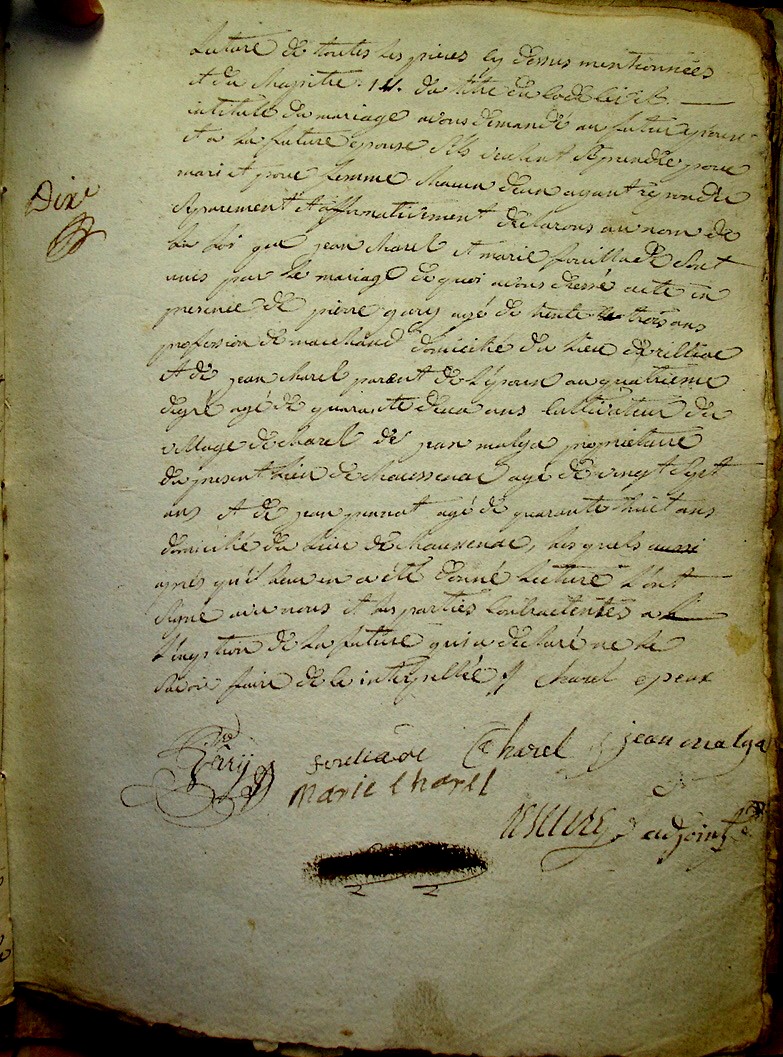 Lecture de toutes les pièces cy dessus mentionnées
et du chapitre du titre du code civil
intitulé du mariage avons demandé au futur époux
et a la future epouse s'ils veulent se prendre pour
mari et pour femme chacun deux ayant repondu
Dix
séparement et affirmativement déclarons au nom de
la loi que jean charel et marie fouilhade sont
unis par le mariage de quoi avons dressé acte en
presence de pierre gary agé de trente trois ans
profession de marchand domicilié du lieu
et de jean charel parent de l'époux au quatrieme
degré agé de quarante deux ans cultivateur du
village de charel de jean malga propriétaire
du present lieu de chaussenac agé de vingt sept
ans et de jean agé de quarante huit ans
domicilié du lieu de chaussenac, les quels aussi
après qu'il leur en a été donné lecture l'ont
signé avec nous et les parties contractentes a
l'éxeption de la future qui a déclaré ne le
savoir faire de ce interpellée charel epoux
charel jean malga
marie charel
adjoint